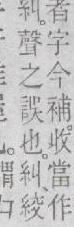 者字今補。收當作
糾。聲之誤也。糾、
謂